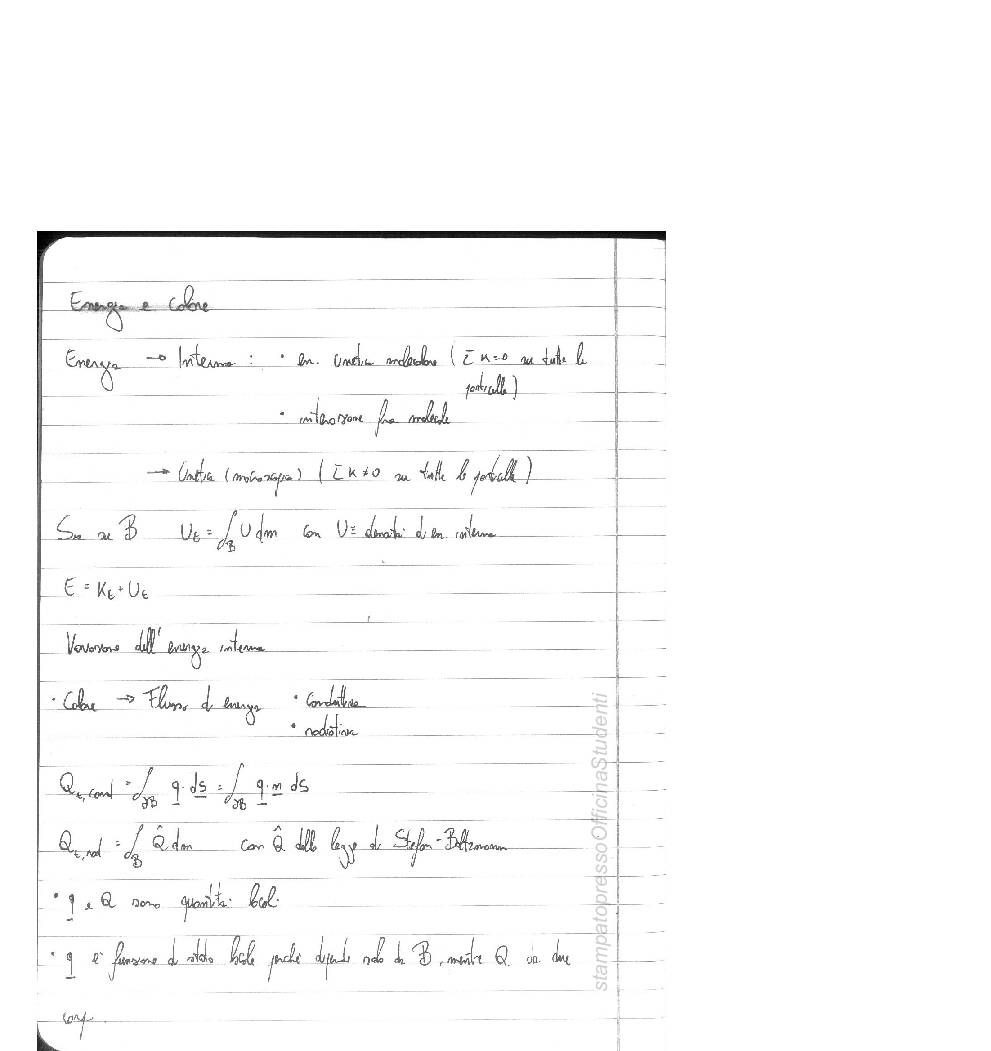 Energia e calore
Energia → Interna : • en. cinetica molecolare ( Σ K=0 su tutte le
particelle)
• interazione fra molecole
→ Cinetica (macroscopica) ( Σ K≠0 su tutte le particelle)
Sia su B U_t = ∫_B U dm con U = densità di en. interna
E = K_t + U_t
Variazione dell'energia interna
• Calore → Flusso di energia • conduttivo
• radiativa
Q_t,cond = ∫_∂B q · ds = ∫_∂B q · n ds
Q_t,rad = ∫_B Q̂ dm con Q̂ dalla legge di Stefan-Boltzmann
• q e Q sono quantità locali
• q è funzione di stato locale perché dipende solo da B, mentre Q da due
corpi.
stampatopressoOfficinaStudenti